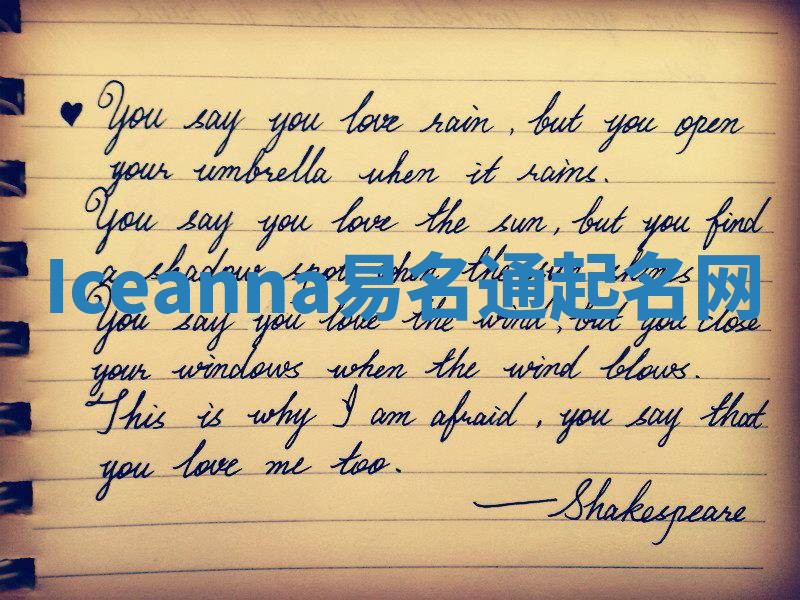 ♥ You say you love rain, but you open
your umbrella when it rains.
You say you love the sun, but you find
a shadow spot when the sun shines
Iceanna易名通起名网
You say you love the wind, but you close
your windows when the wind blows.
This is why I am afraid, you say that
you love me too.
—Shakespeare